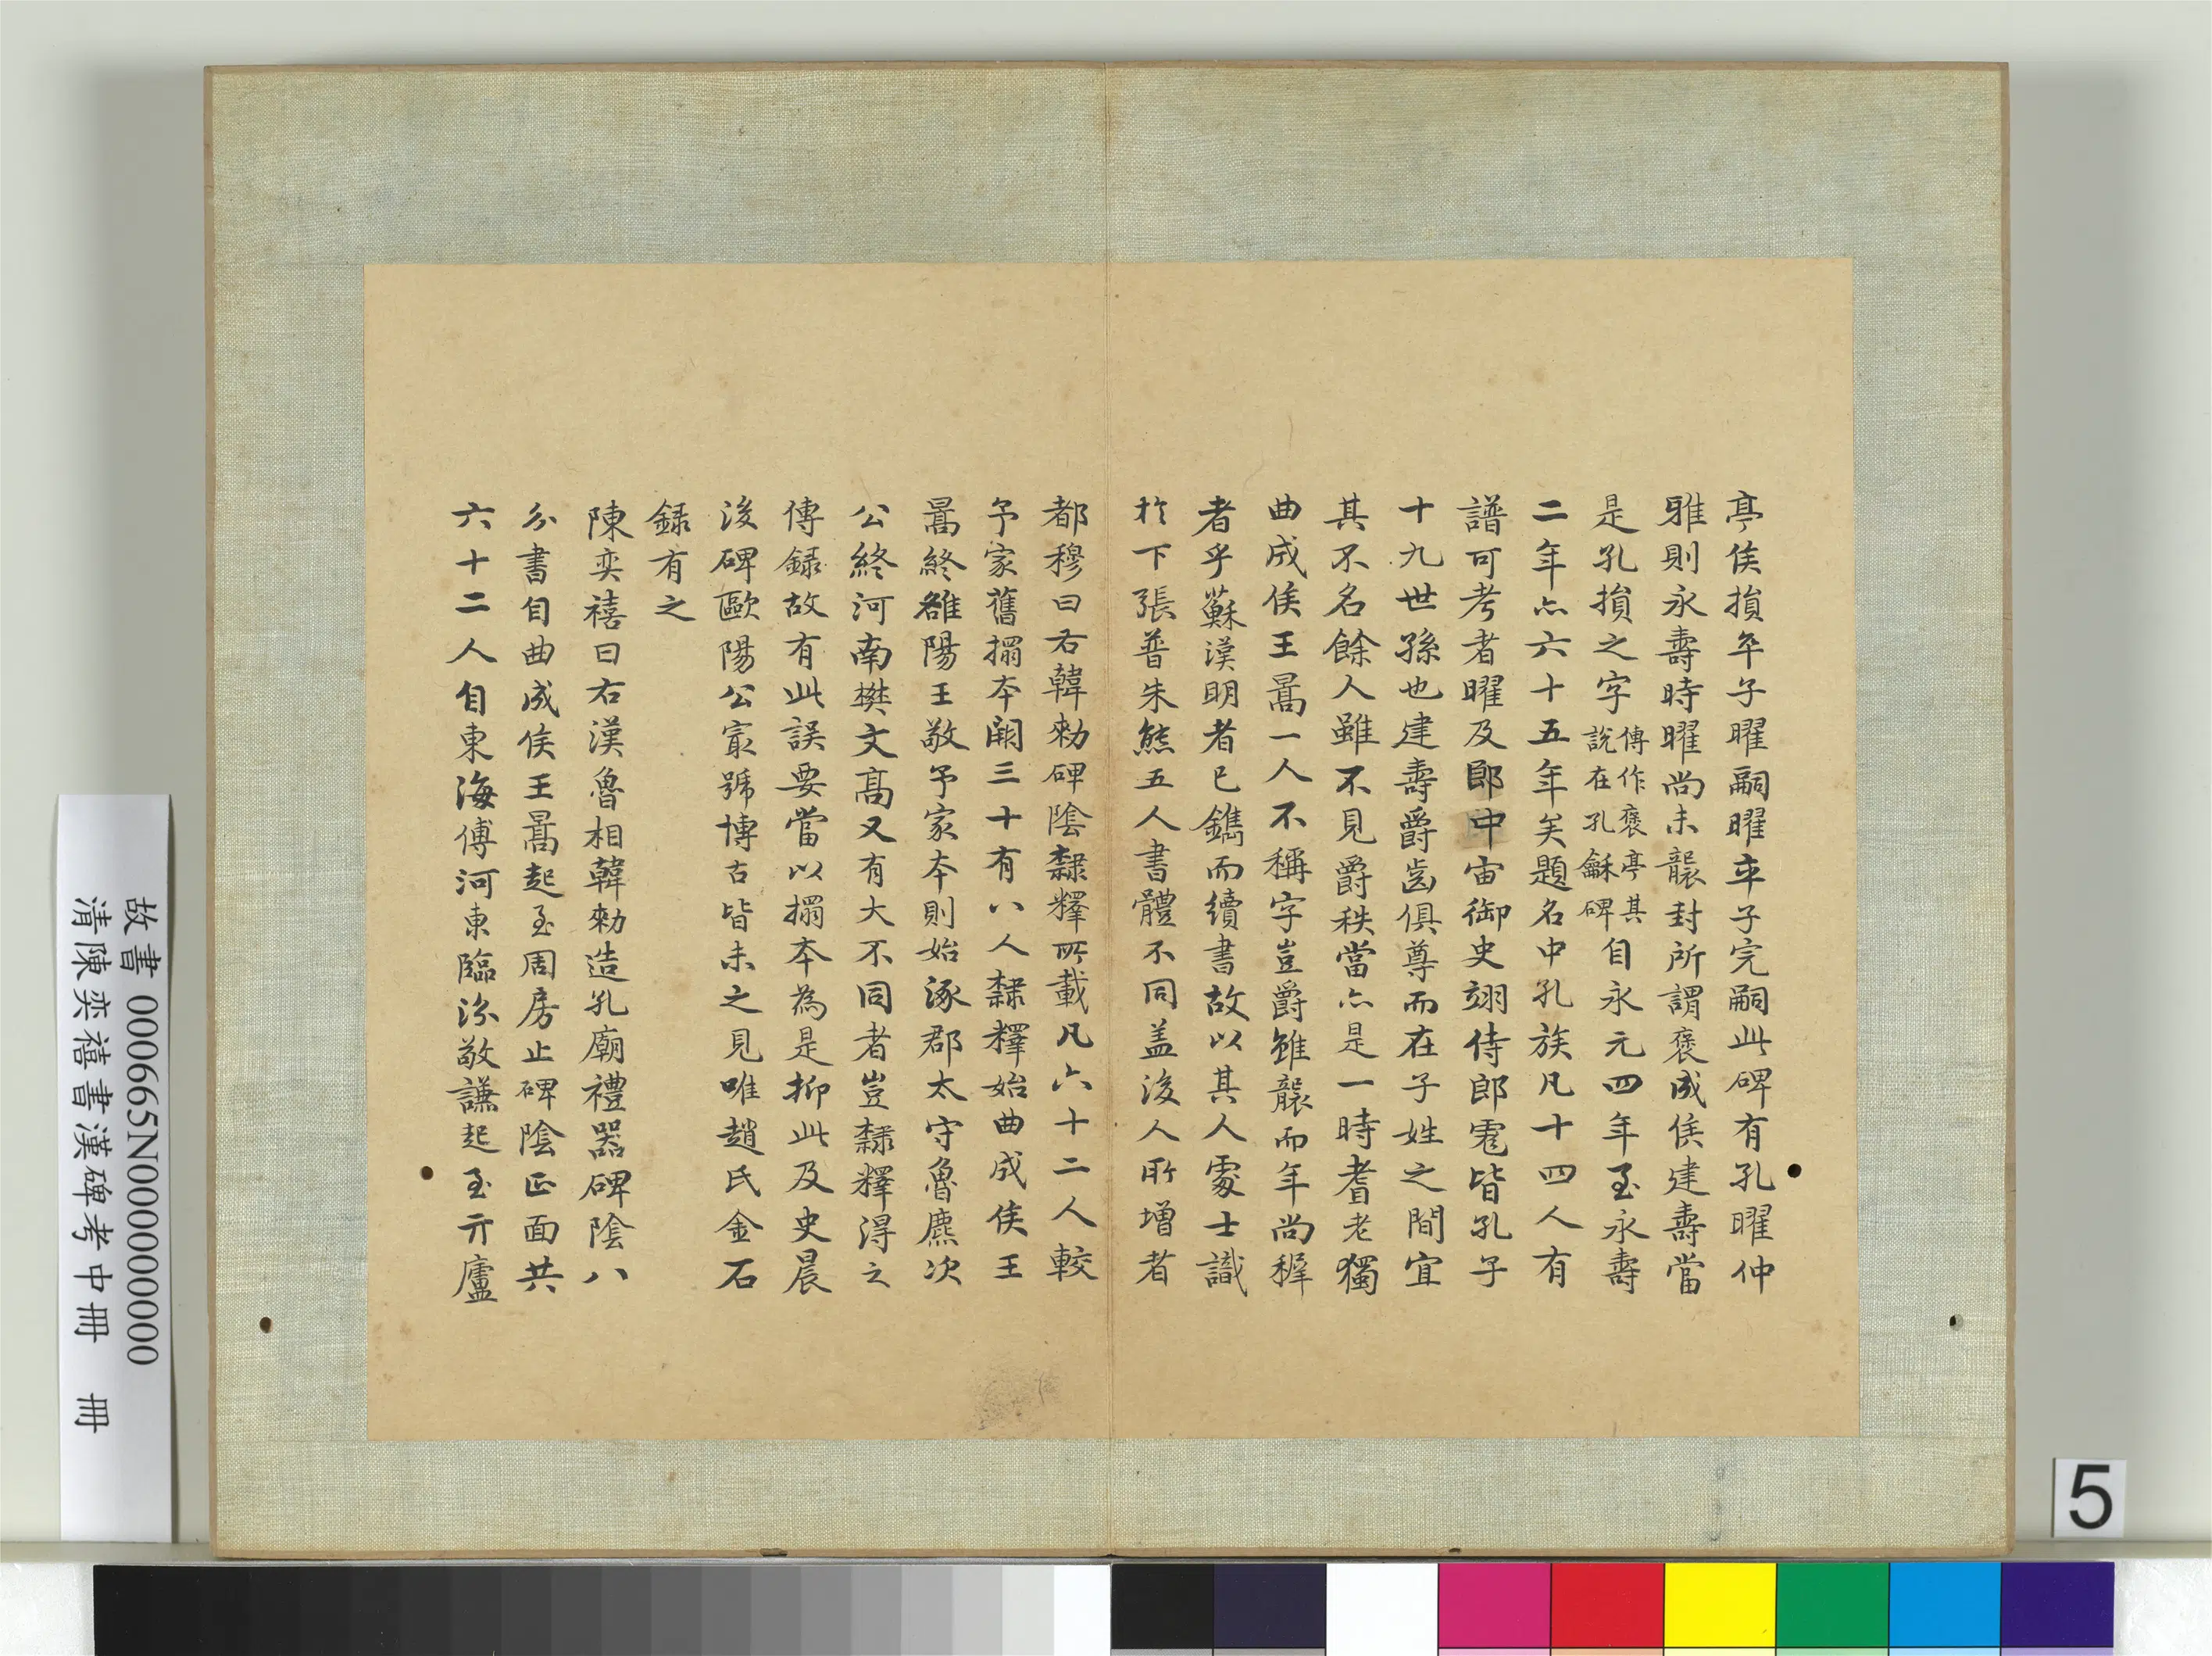 亭侯損卒子曜嗣曜卒子完嗣此碑有孔曜仲
雅則永壽時曜尚未襲封所謂褒成侯建壽當
是孔損之字傳作褒亭其說在孔龢碑自永元四年至永壽
二年亦六十五年矣題名中孔族凡十四人有
譜可考者曜及郎中宙御史翊侍郎彪皆孔子
十九世孫也建壽爵齒俱尊而在子姓之間宜
其不名餘人雖不見爵秩當亦是一時耆老獨
曲成侯王暠一人不稱字豈爵雖襲而年尚稺
者乎蘇漢明者已鐫而續書故以其人處士識
於下張普朱熊五人書體不同盖後人所增者
都穆曰右韓勑碑陰隸釋所載凡六十二人較
予家舊搨本闕三十有八人隸釋始曲成侯王
暠終雒陽王敬予家本則始涿郡太守魯麃次
公終河南樊文高又有大不同者豈隸釋得之
傳録故有此誤要當以搨本為是抑此及史晨
後碑歐陽公最號博古皆未之見唯趙氏金石
録有之
陳奕禧曰右漢魯相韓勑造孔廟禮器碑陰八
分書自曲成侯王暠起至周房止碑陰正面共
六十二人自東海傅河東臨汾敬謙起至亓廬
故書 000665N000000000
清陳奕禧書漢碑考中冊 冊
5